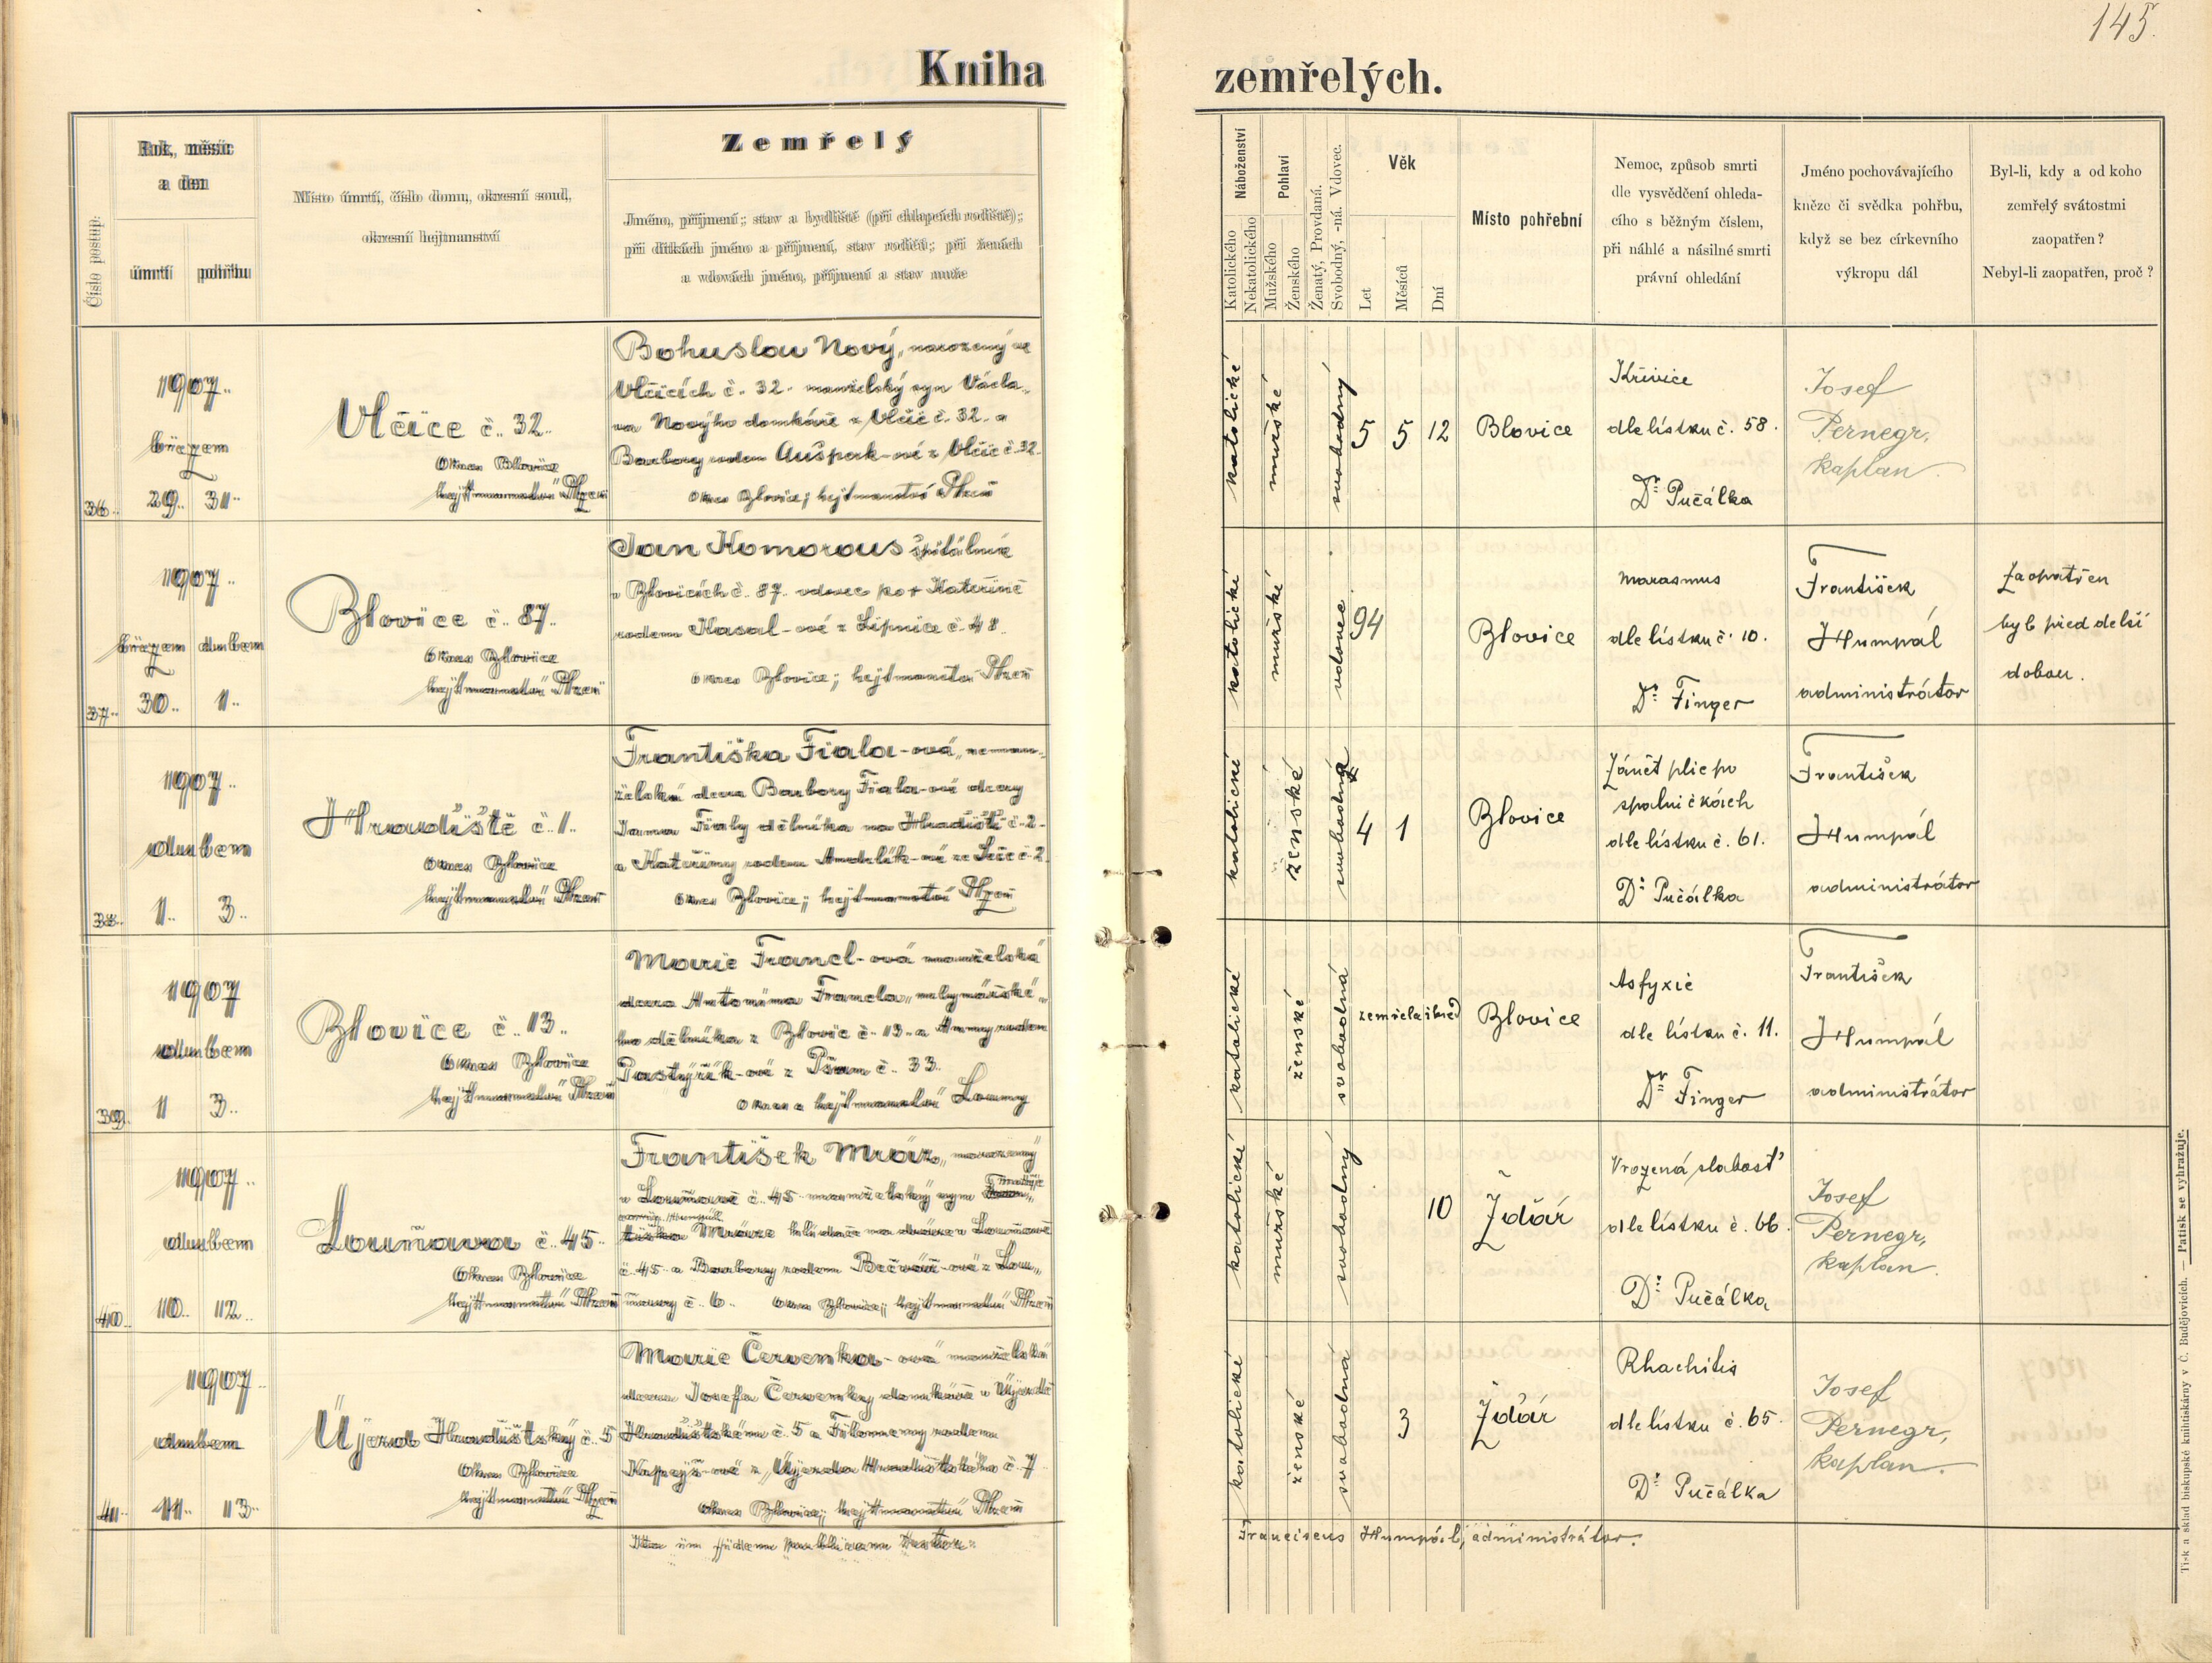 145.
Kniha zemřelých.
Číslo postup.
Rok, měsíc
a den
úmrtí
pohřbu
Místo úmrtí, číslo domu, okresní soud,
okresní hejtmanství
Zemřelý
Jméno, příjmení; stav a bydliště (při chlapcích rodiště);
při dítkách jméno a příjmení, stav rodičů; při ženách
a vdovách jméno, příjmení a stav muže
Náboženství
Katolického
Nekatolického
Pohlaví
Mužského
Ženského
Ženatý, Provdaná.
Svobodný, -ná. Vdovec.
Věk
Let
Měsíců
Dní
Místo pohřební
Nemoc, způsob smrti
dle vysvědčení ohleda-
cího s běžným číslem,
při náhlé a násilné smrti
právní ohledání
Jméno pochovávajícího
kněze či svědka pohřbu,
když se bez církevního
výkropu dál
Byl-li, kdy a od koho
zemřelý svátostmi
zaopatřen?
Nebyl-li zaopatřen, proč?
36.
1907.
březen
29. 31.
Vlčice č. 32.
Okres Blovice
hejtmanství Plzeň
Bohuslav Nový, narozený ve
Vlčicích č. 32. manželský syn Václa-
va Nového domkáře z Vlčic č. 32. a
Barbory rodem Aušperk-ové z Vlčic č. 32.
Okres Blovice; hejtmanství Plzeň
katolické
mužské
svobodný
5 5 12
Blovice
Křivice
dle lístku č. 58.
Dr. Pučálka
Josef
Pernegr,
kaplan.
37.
1907.
březen duben
30. 1.
Blovice č. 87.
Okres Blovice
hejtmanství Plzeň
Jan Komorous špitálník
v Blovicích č. 87. vdovec po + Kateřině
rodem Kasal-ové z Lipnice č. 48.
okres Blovice; hejtmanství Plzeň
katolické
mužské
vdovec.
94
Blovice
Marasmus
dle lístku č. 10.
Dr. Finger
František
Humpál
administrátor
Zaopatřen
byl před delší
dobou.
38.
1907.
duben
1. 3.
Hradiště č. 1.
Okres Blovice
hejtmanství Plzeň
Františka Fiala-ová, neman-
želská dcera Barbory Fiala-ové dcery
Jana Fialy dělníka na Hradišti č. 2.
a Kateřiny rodem Andrlík-ové ze Seče č. 2.
okres Blovice; hejtmanství Plzeň
katolické
ženské
svobodná
4 1
Blovice
Zánět plic po
spalničkách
dle lístku č. 61.
Dr. Pučálka
František
Humpál
administrátor
39.
1907
duben
1 3.
Blovice č. 13.
Okres Blovice
hejtmanství Plzeň
Marie Francl-ová manželská
dcera Antonína Francla, mlynářské-
ho dělníka z Blovic č. 13. a Anny rodem
Pastýřík-ové z Pšan č. 33.
okres a hejtmanství Louny
katolické
ženské
svobodná
zemřela ihned
Blovice
Asfyxie
dle lístku č. 11.
Dr. Finger
František
Humpál
administrátor
40.
1907.
duben
10. 12.
Louňová č. 45.
Okres Blovice
hejtmanství Plzeň
František Mráz, narozený
v Louňové č. 45. manželský syn
Mráze hlídače na dráze v Louňové
č. 45. a Barbory rodem Bečvář-ové z Lou-
ňovy č. 6. Okres Blovice; hejtmanství Plzeň
katolické
mužské
svobodný
10
Ždár
Vrozená slabost'
dle lístku č. 66.
Dr. Pučálka
Josef
Pernegr,
kaplan.
41.
1907.
duben
11. 13.
Újezd Hradišťský č. 5
Okres Blovice
hejtmanství Plzeň
Marie Červenka-ová manželská
dcera Josefa Červenky domkáře v Újezdě
Hradišťském č. 5 a Filomeny rodem
z Újezda Hradišťského č. 7.
Okres Blovice; hejtmanství Plzeň
katolické
ženské
svobodná
3
Ždár
Rhachitis
dle lístku č. 65.
Dr. Pučálka
Josef
Pernegr,
kaplan.
Haec in fidem publicam testor:
Franciscus Humpál, administrátor.
Tisk a sklad biskupské knihtiskárny v Č. Budějovicích. — Patisk se vyhražuje.